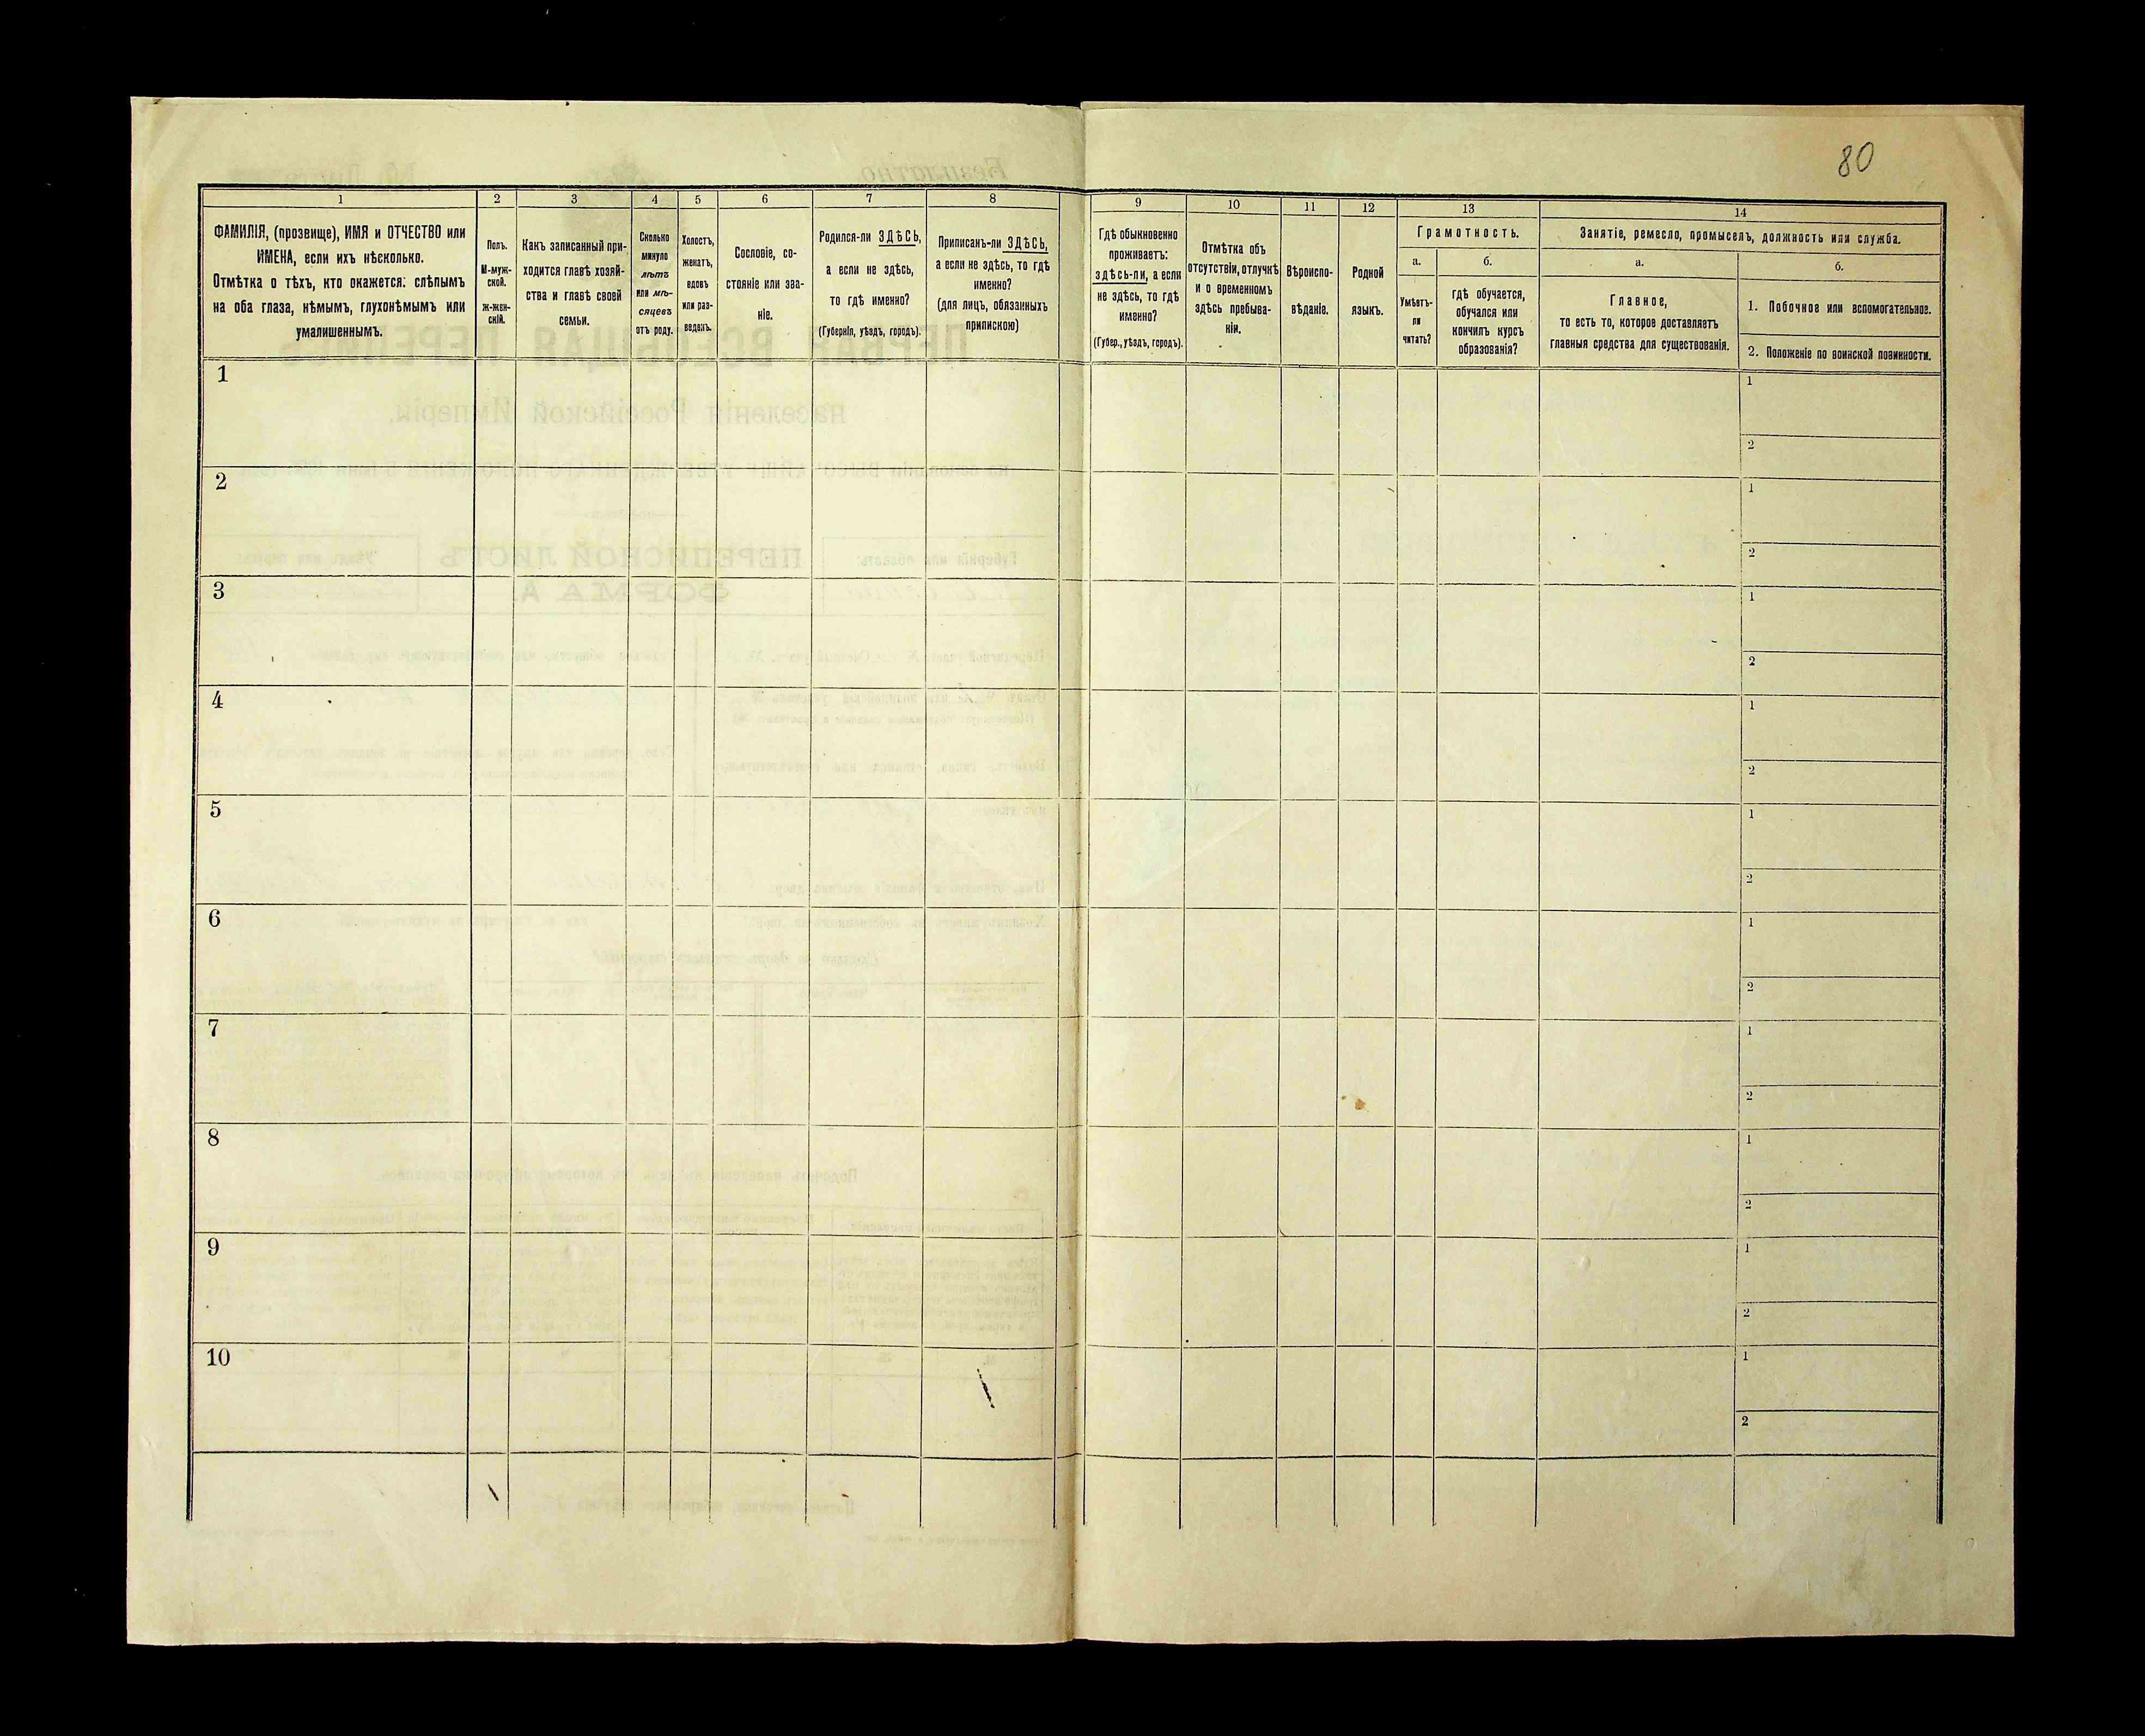 80
1
ФАМИЛІЯ, (прозвище), ИМЯ и ОТЧЕСТВО или
ИМЕНА, если ихъ нѣсколько.
Отмѣтка о тѣхъ, кто окажется: слѣпымъ
на оба глаза, нѣмымъ, глухонѣмымъ или
умалишеннымъ.
2
Полъ.
М-муж-
ской.
ж-жен-
скій.
3
Какъ записанный при-
ходится главѣ хозяй-
ства и главѣ своей
семьи.
4
Сколько
минуло
лѣтъ
или мѣ-
сяцевъ
отъ роду.
5
Холостъ,
женатъ,
вдовъ
или раз-
веденъ.
6
Сословіе, со-
стояніе или зва-
ніе.
7
Родился-ли ЗДѢСЬ,
а если не здѣсь,
то гдѣ именно?
(Губернія, уѣздъ, городъ).
8
Приписанъ-ли ЗДѢСЬ,
а если не здѣсь, то гдѣ
именно?
(для лицъ, обязанныхъ
припискою)
9
Гдѣ обыкновенно
проживаетъ:
здѣсь-ли, а если
не здѣсь, то гдѣ
именно?
(Губер., уѣздъ, городъ).
10
Отмѣтка объ
отсутствіи, отлучкѣ
и о временномъ
здѣсь пребыва-
ніи.
11
Вѣроиспо-
вѣданіе.
12
Родной
языкъ.
13
Грамотность.
а.
Умѣетъ-
ли
читать?
б.
гдѣ обучается,
обучался или
кончилъ курсъ
образованія?
14
Занятіе, ремесло, промыселъ, должность или служба.
а.
Главное,
то есть то, которое доставляетъ
главныя средства для существованія.
б.
1. Побочное или вспомогательное.
2. Положеніе по воинской повинности.
1
1
2
2
1
2
3
1
2
4
1
2
5
1
2
6
1
2
7
1
2
8
1
2
9
1
2
10
1
2